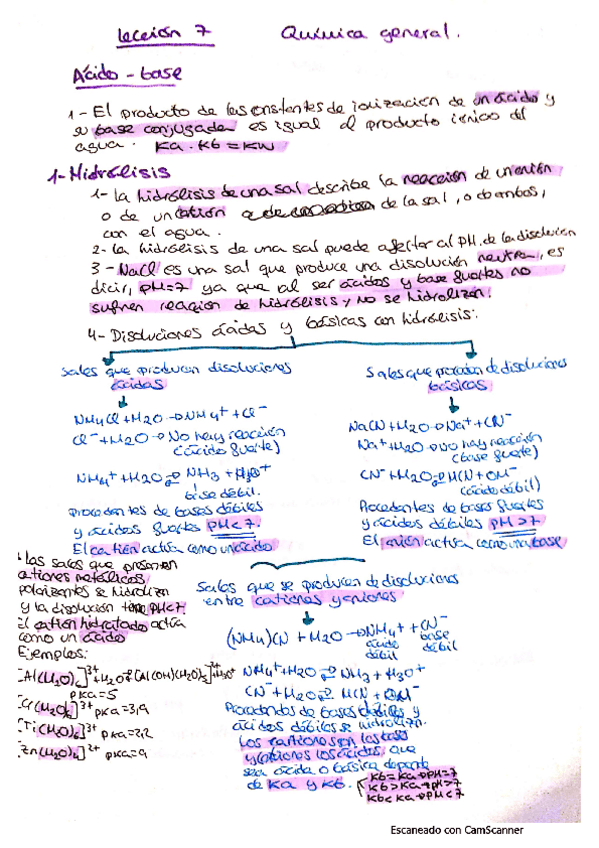 Lección 7 Química general.
Ácido - base
1 - El producto de las constantes de ionización de un ácido y
su base conjugada es igual al producto iónico del
agua. Ka . Kb = Kw
1- Hidrólisis
1- La hidrólisis de una sal describe la reacción de un anión
o de un catión de la sal, o de ambos,
con el agua.
2- La hidrólisis de una sal puede afectar al pH de la disolución
3 - NaCl es una sal que produce una disolución neutra, es
decir, pH=7 ya que al ser ácidos y base fuertes no
sufren reacción de hidrólisis y no se hidrolizan.
4- Disoluciones ácidas y básicas con hidrólisis:
Sales que producen disoluciones
ácidas
NH4Cl + H2O → NH4+ + Cl-
Cl- + H2O → No hay reacción
(ácido fuerte)
NH4+ + H2O ⇌ NH3 + H3O+
base débil.
procedentes de bases débiles
y ácidos fuertes pH<7.
El catión actúa como un ácido
Sales que proceden de disoluciones
básicas
NaCN + H2O → Na+ + CN-
Na+ + H2O → No hay reacción
(base fuerte)
CN- + H2O ⇌ HCN + OH-
(ácido débil)
Procedentes de bases fuertes
y ácidos débiles pH>7.
El anión actúa como una base
Las sales que presentan
cationes metálicos
polarizantes se hidrolizan
y la disolución tiene pH<7
El catión hidratado actúa
como un ácido
Ejemplos:
[Al(H2O)6]3+ + H2O ⇌ [Al(OH)(H2O)5]2+ + H3O+
pKa=5
[Cr(H2O)6]3+ pKa=3,9
[Ti(H2O)6]3+ pKa=2,2
[Zn(H2O)6]2+ pKa=9
Sales que se producen de disoluciones
entre cationes y aniones
(NH4)CN + H2O → NH4+ + CN-
ácido débil base débil
NH4+ + H2O ⇌ NH3 + H3O+
CN- + H2O ⇌ HCN + OH-
Procedentes de bases débiles y
ácidos débiles se hidrolizan.
Los aniones son las bases
y cationes los ácidos, que
sea ácida o básica depende
de Ka y Kb.
Kb = Ka → pH=7
Kb > Ka → pH>7
Kb < Ka → pH<7
Escaneado con CamScanner